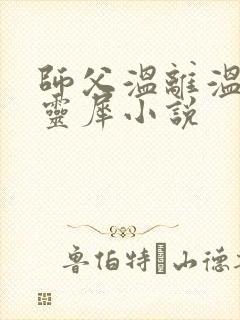 師父溫離溫
靈犀小說
魯伯特·山德